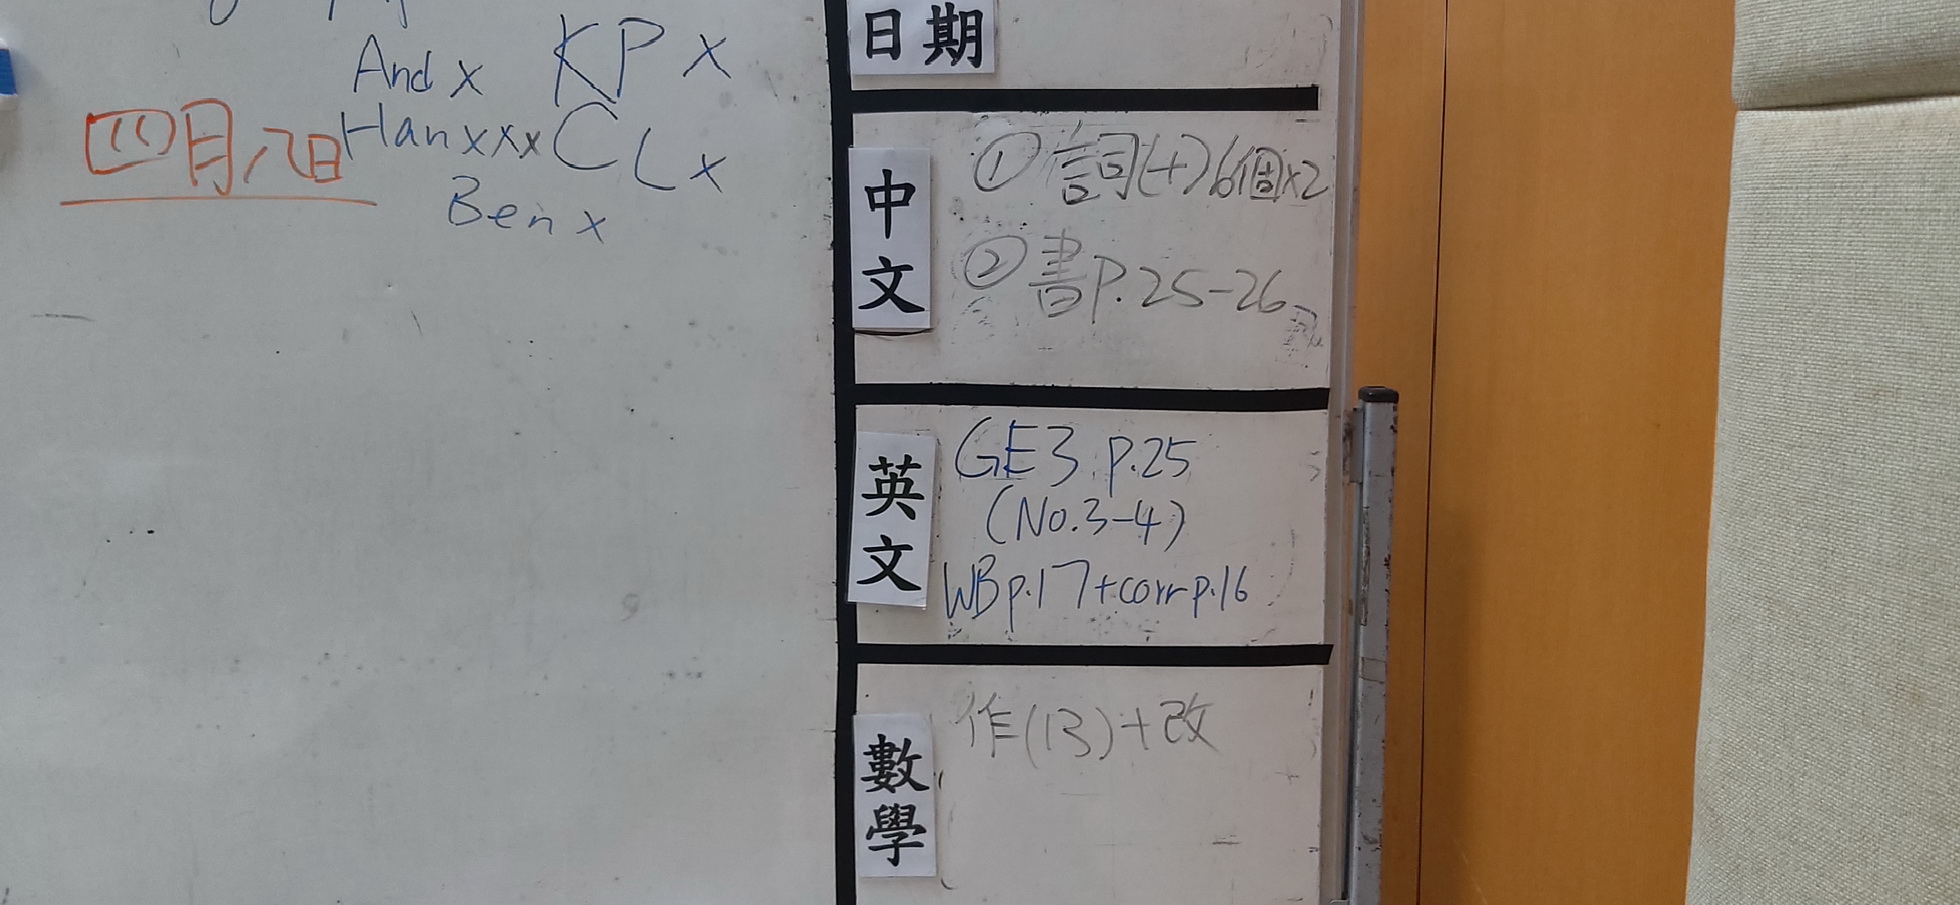 And x KP x
四月八日 Han xxx CL x
Ben x
日期
中文
① 詞(十)6個x2
② 書P.25-26
英文
GE3 p.25
(No.3-4)
WB p.17+corr p.16
數學
作(13)+改